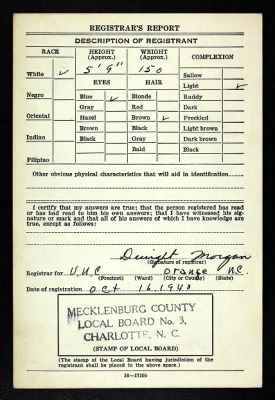 REGISTRAR'S REPORT
DESCRIPTION OF REGISTRANT
RACE HEIGHT (Approx.) WEIGHT (Approx.) COMPLEXION
5' 9" 150
White ✓ Sallow
EYES HAIR Light ✓
Negro Blue ✓ Blonde Ruddy
Gray Red Dark
Oriental Hazel Brown ✓ Freckled
Brown Black Light brown
Indian Black Gray Dark brown
Bald Black
Filipino
Other obvious physical characteristics that will aid in identification
I certify that my answers are true; that the person registered has read
or has had read to him his own answers; that I have witnessed his
signature or mark and that all of his answers of which I have knowledge
are true, except as follows:
Dwight Morgan
(Signature of registrar)
Registrar for U.N.C Orange NC
(Precinct) (Ward) (City or County) (State)
Date of registration Oct 16, 1940
MECKLENBURG COUNTY
LOCAL BOARD No. 3,
CHARLOTTE, N. C.
(STAMP OF LOCAL BOARD)
(The stamp of the Local Board having jurisdiction of the
registrant shall be placed in the above space.)
16—17105